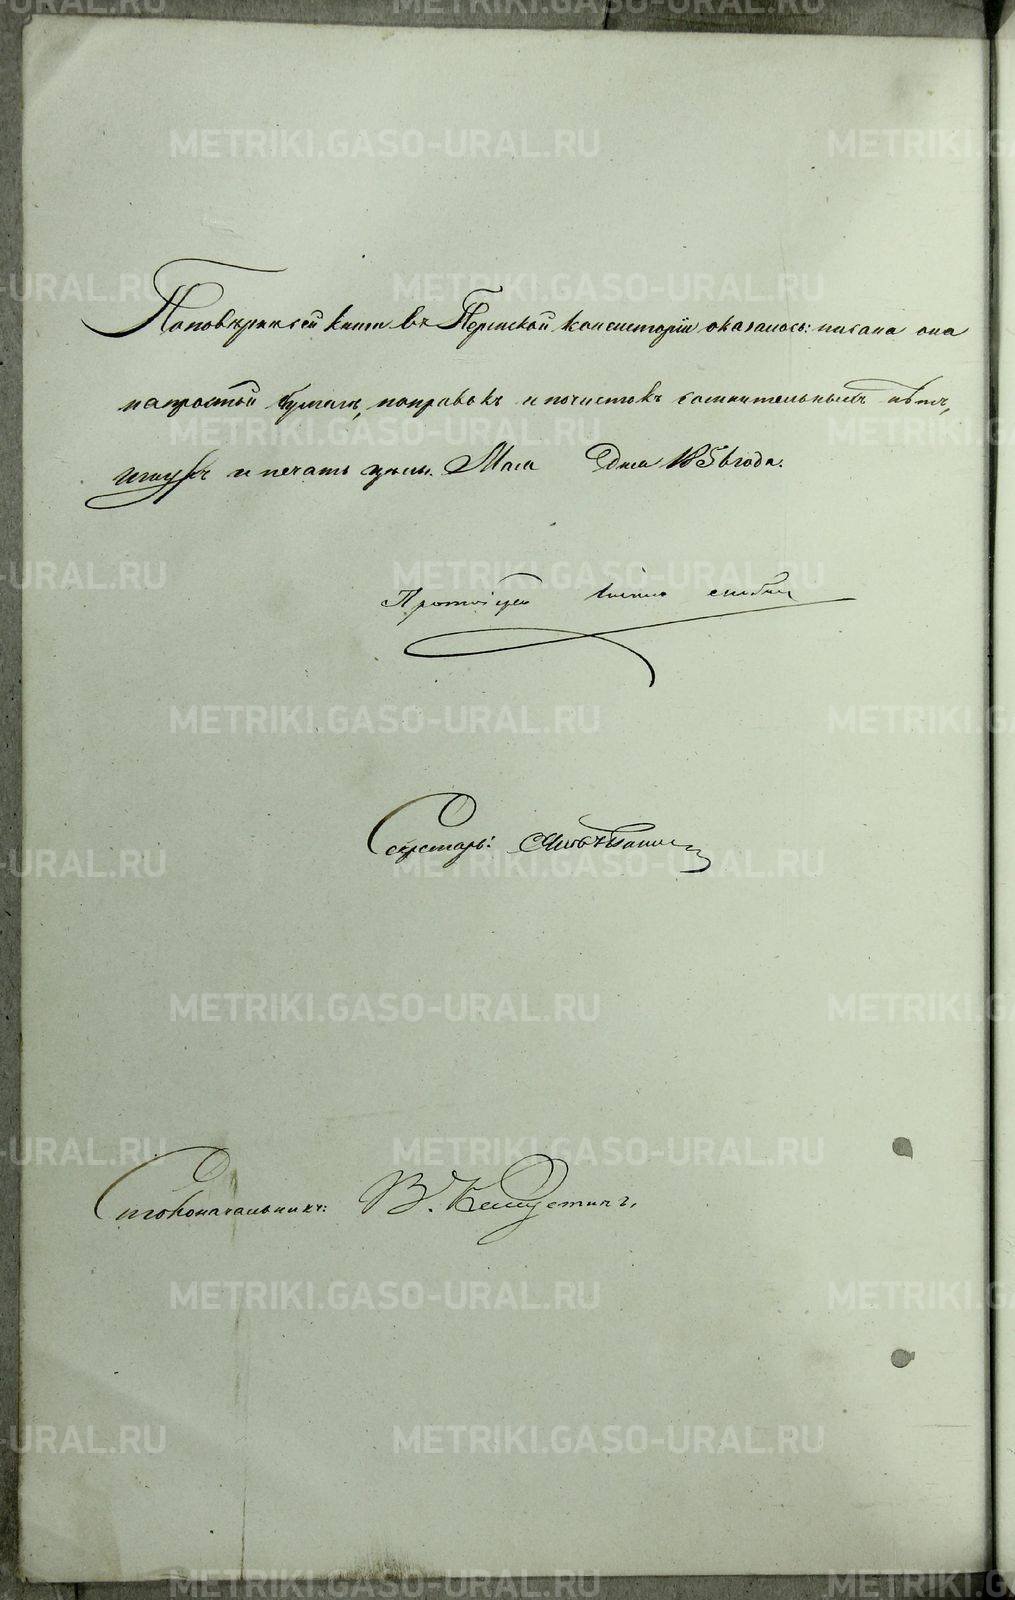 По повѣркѣ сей книги въ Пермской консисторіи оказалось: писана она
на простой бумагѣ, поправокъ и почистокъ сомнительныхъ нѣтъ,
шнуръ и печать цѣлы. Мая Дня 1856 года.
Протоіерей
Секретарь:
Столоначальникъ: В.
METRIKI.GASO-URAL.RU